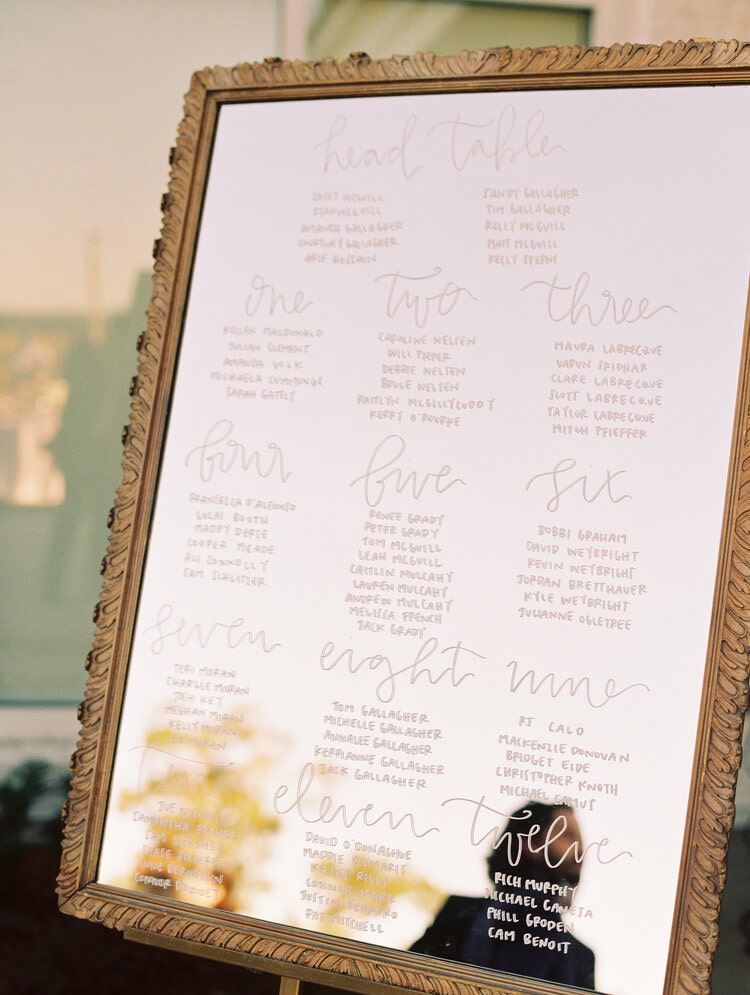 head table
MCGUILL
MCGUILL
AMANDA GALLAGHER
GALLAGHER
SANDY GALLAGHER
TIM GALLAGHER
KELLY MCGUILL
MATT MCGUILL
KELLY STERNS
one
KILLEN MALDONALD
JULIAN CLEMENT
AMANDA VILK
MICHAELA CUMMINGS
SARAH GATELY
two
CAROLINE NELSEN
WILL PIEPER
DEBBIE NELSEN
BRUCE NELSEN
KAITLYN MCGILLYCUDDY
KERRY O'ROURKE
three
MAURA LABRECQUE
VARUN SRIDHAR
CLARE LABRECQUE
SCOTT LABRECQUE
TAYLOR LABRECQUE
MITCH PFIEFFER
four
FRANCESCA D'ALFONSO
LUCAS BOOTH
MADDY DERIE
COOPER MEADE
ALI CONNOLLY
SAM SCHLITZER
five
RENEE GRADY
PETER GRADY
TOM MCGUILL
LEAH MCGUILL
CAITLIN MULCAHY
LAUREN MULCAHY
ANDREW MULCAHY
MELISSA FRENCH
JACK GRADY
six
BOBBI GRAHAM
DAVID WEYBRIGHT
KEVIN WEYBRIGHT
JORDAN BRETTHAUER
KYLE WEYBRIGHT
JULIANNE OGLETREE
seven
TERI MORAN
CHARLIE MORAN
JOSH KEY
MEGHAN MORAN
KELLY MORAN
MORAN
eight
TOM GALLAGHER
MICHELLE GALLAGHER
ANNALEE GALLAGHER
KERRIANNE GALLAGHER
JACK GALLAGHER
nine
RJ CALO
MACKENZIE DONOVAN
BRIDGET EIDE
CHRISTOPHER KNOTH
MICHAEL CAMUS
JOE
SAMANTHA
CONNOR
eleven
DAVID O'DONAGHUE
MADDIE
CONNOR MARK
PAT MITCHELL
twelve
RICH MURPHY
MICHAEL CANEJA
PHILL GRODEN
CAM BENOIT